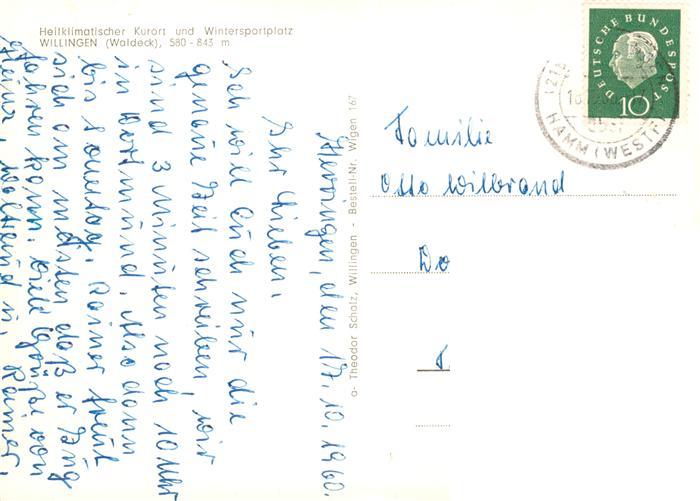 Heilklimatischer Kurort und Wintersportplatz
WILLINGEN (Waldeck), 580 - 843 m
Herringen, den 17. 10. 1960.
Ihr Lieben,
Ich will Euch nur die
genaue Zeit schreiben, wir
sind 3 Minuten nach 10 Uhr
in Dortmund. Also dann
bis Sonntag. Rainer freut
sich am meisten daß er Zug
fahren kann. Viele Grüße von
Heinz, u. Rainer.
a- Theodor Scholz, Willingen - Bestell-Nr. Wigen 167
DEUTSCHE BUNDESPOST
10
HAMM (WESTF)
Familie
Otto Wilbrand
Do